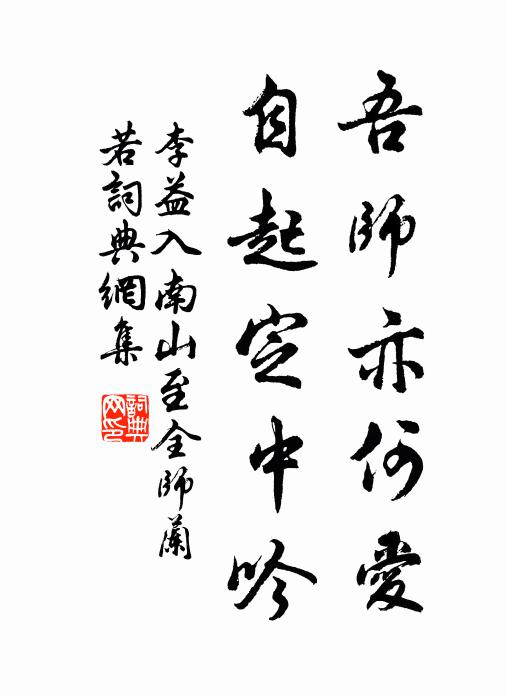 吾師亦何愛
自起定中吟
李益入南山至全師蘭
若詞典網集
詞典
网印